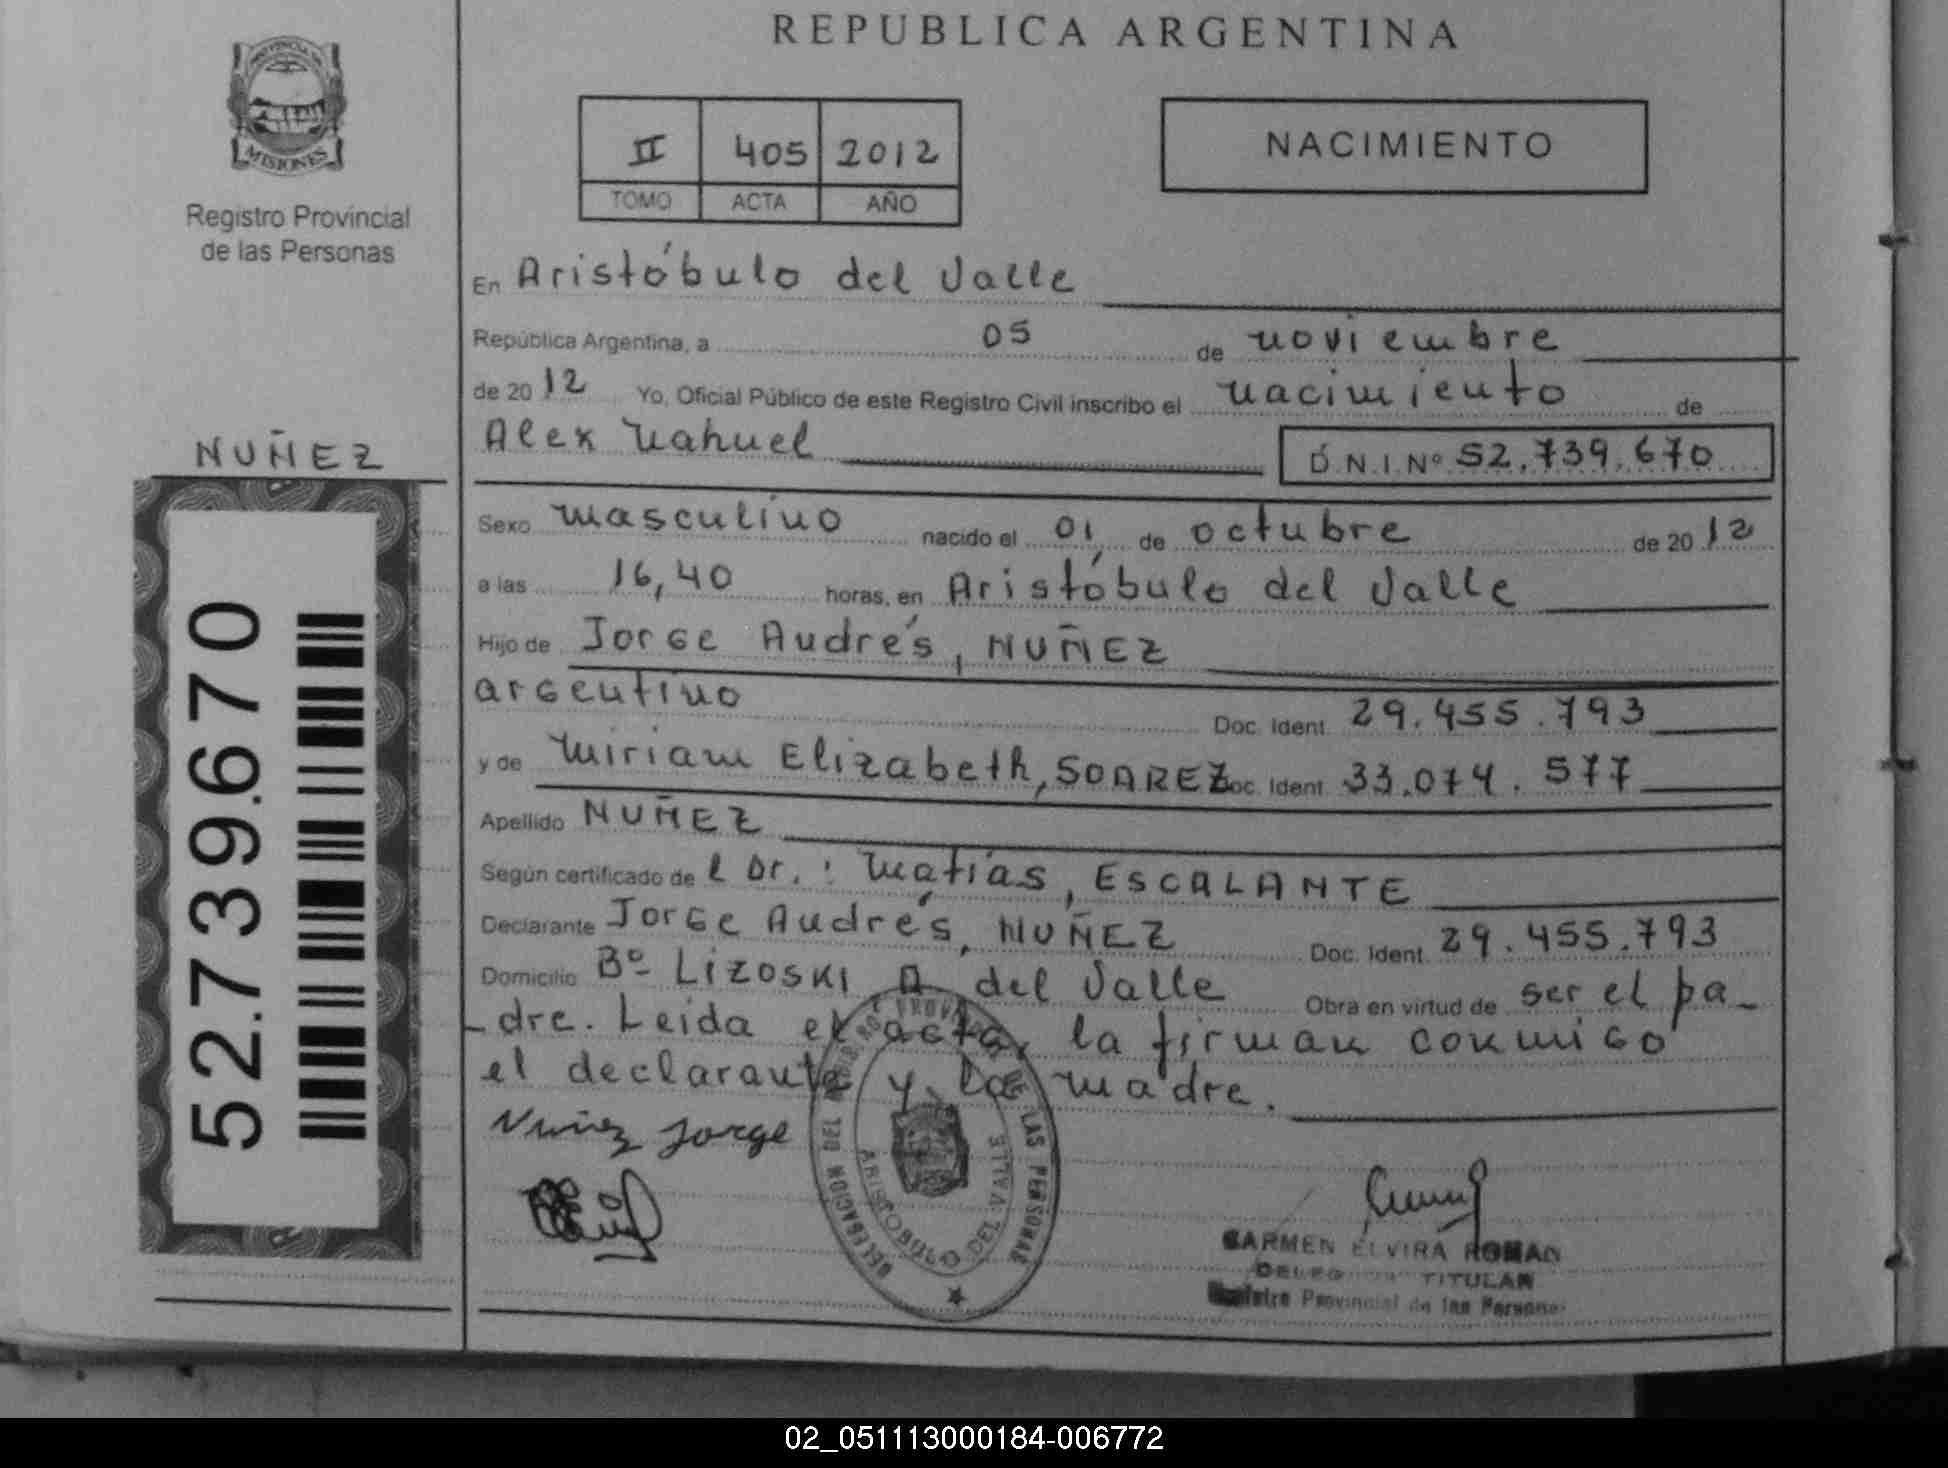 REPUBLICA ARGENTINA
PROVINCIA DE
MISIONES
Registro Provincial
de las Personas
II 405 2012
TOMO ACTA AÑO
NACIMIENTO
En Aristóbulo del Valle
República Argentina, a 05 de noviembre
de 2012 Yo, Oficial Público de este Registro Civil inscribo el nacimiento de
Alex Nahuel D.N.I.Nº 52.739.670
NUÑEZ
52.739.670
Sexo masculino nacido el 01 de octubre de 2012
a las 16,40 horas, en Aristóbulo del Valle
Hijo de Jorge Andrés, NUÑEZ
argentino Doc. Ident. 29.455.793
y de Miriam Elizabeth, SOAREZ Doc. Ident. 33.074.577
Apellido NUÑEZ
Según certificado de l Dr.: Matías, ESCALANTE
Declarante Jorge Andrés, NUÑEZ Doc. Ident. 29.455.793
Domicilio Bº LIZOSKI A del Valle Obra en virtud de ser el pa-
-dre. Leida el acta, la firman conmigo
el declarante y la madre.
Nuñez Jorge
DELEGACION DEL DE LAS PERSONAS
ARISTOBULO DEL VALLE
CARMEN ELVIRA ROMAN
TITULAR
Registro Provincial de las Personas
02_051113000184-006772